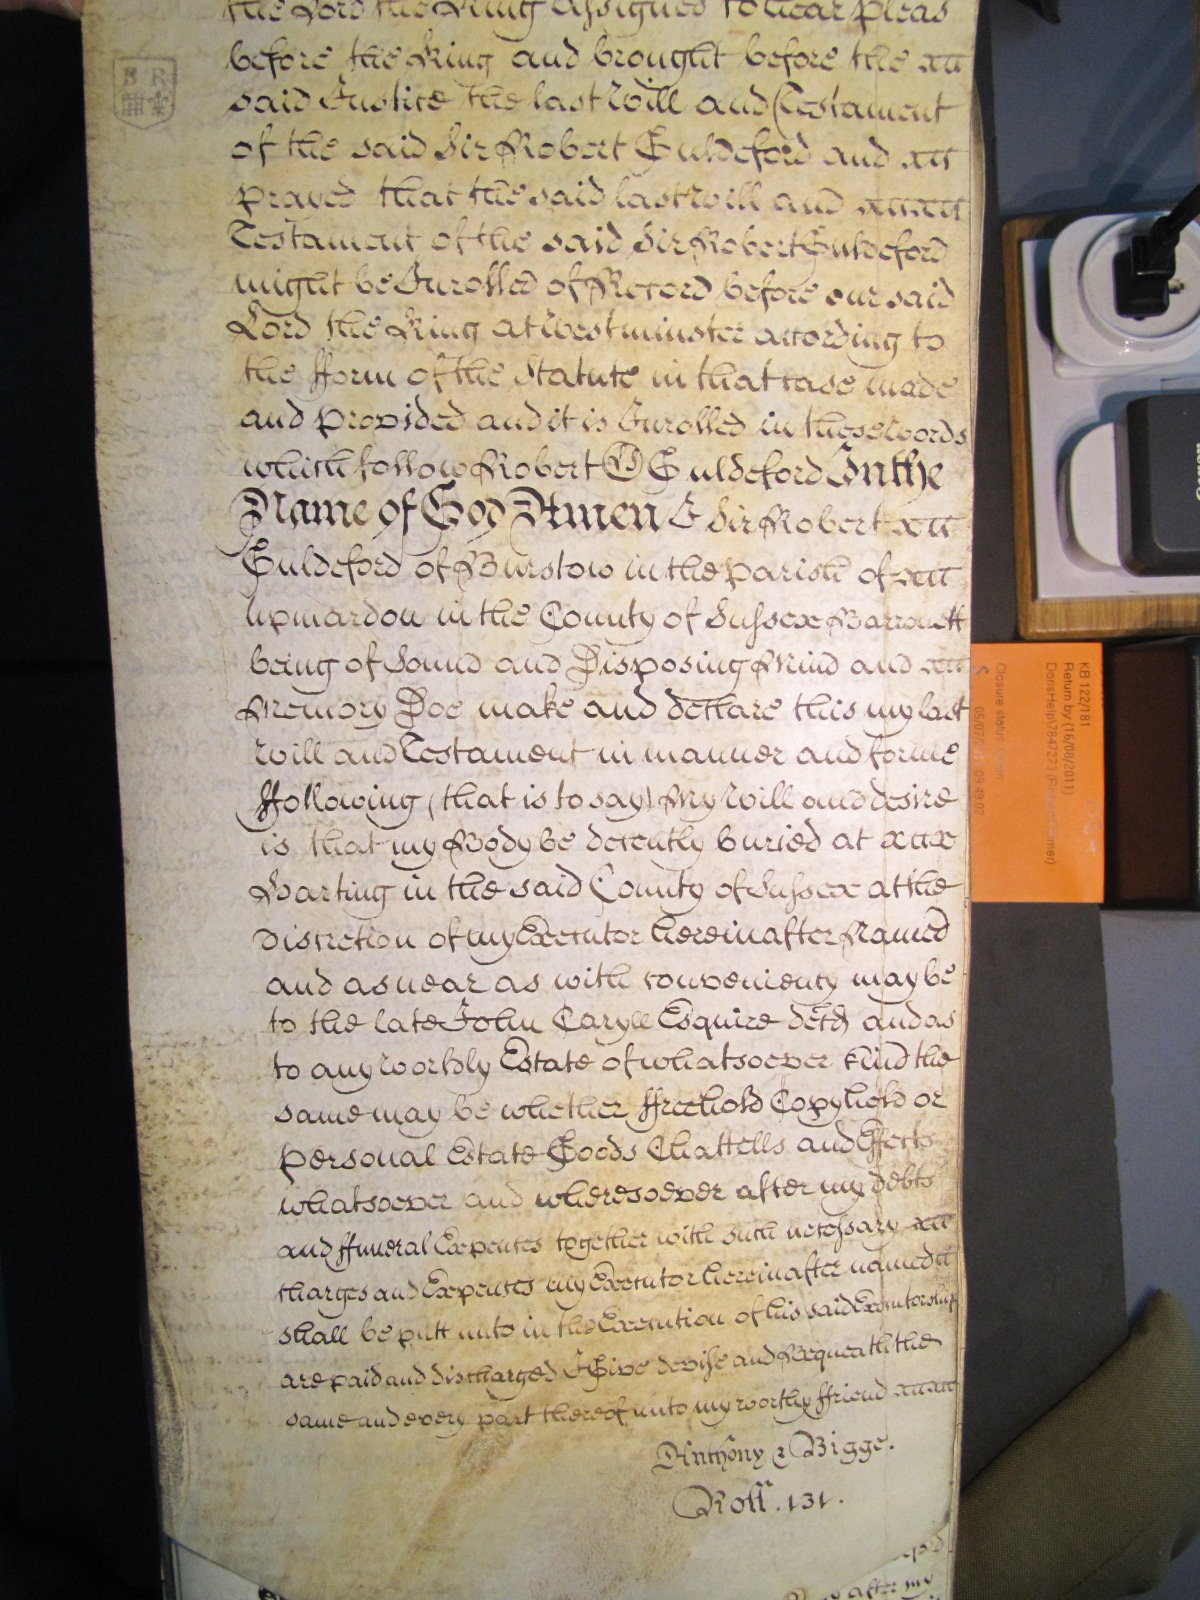 the Lord the King Assigned to hear Pleas
before the King and brought before the
B R
said Justice the last Will and Testament
of the said Sir Robert Guldeford and
prayed that the said last Will and
Testament of the said Sir Robert Guldeford
might be Inrolled of Record before our said
Lord the King at Westminster according to
the fform of the Statute in that case made
and provided and it is Inrolled in these words
which follow Robert Guldeford In the
Name of God Amen I Sir Robert
Guldeford of Burstow in the parish of
upmardon in the County of Sussex Barronett
being of Sound and Disposing Mind and
Memory Doe make and declare this my last
Will and Testament in manner and forme
ffollowing (that is to say) My Will and desire
is that my Body be decently buried at
Harting in the said County of Sussex at the
discretion of my Executor hereinafter Named
and as near as with conveniency may be
to the late John Caryll Esquire decd and as
to any Worldly Estate of whatsoever kind the
same may be whether ffreehold Copyhold or
personal Estate Goods Chattells and Effects
whatsoever and wheresoever after my debts
and ffuneral Expences together with such necessary
charges and Expences my Executor hereinafter named
shall be putt unto in the Execution of his said Executorship
are paid and discharged I Give devise and Bequeath the
same and every part thereof unto my worthy ffriend
Anthony & Bigge.
Roll. 131.
after my
KB 122/181
Return by (16/08/2011)
Closure status: Open